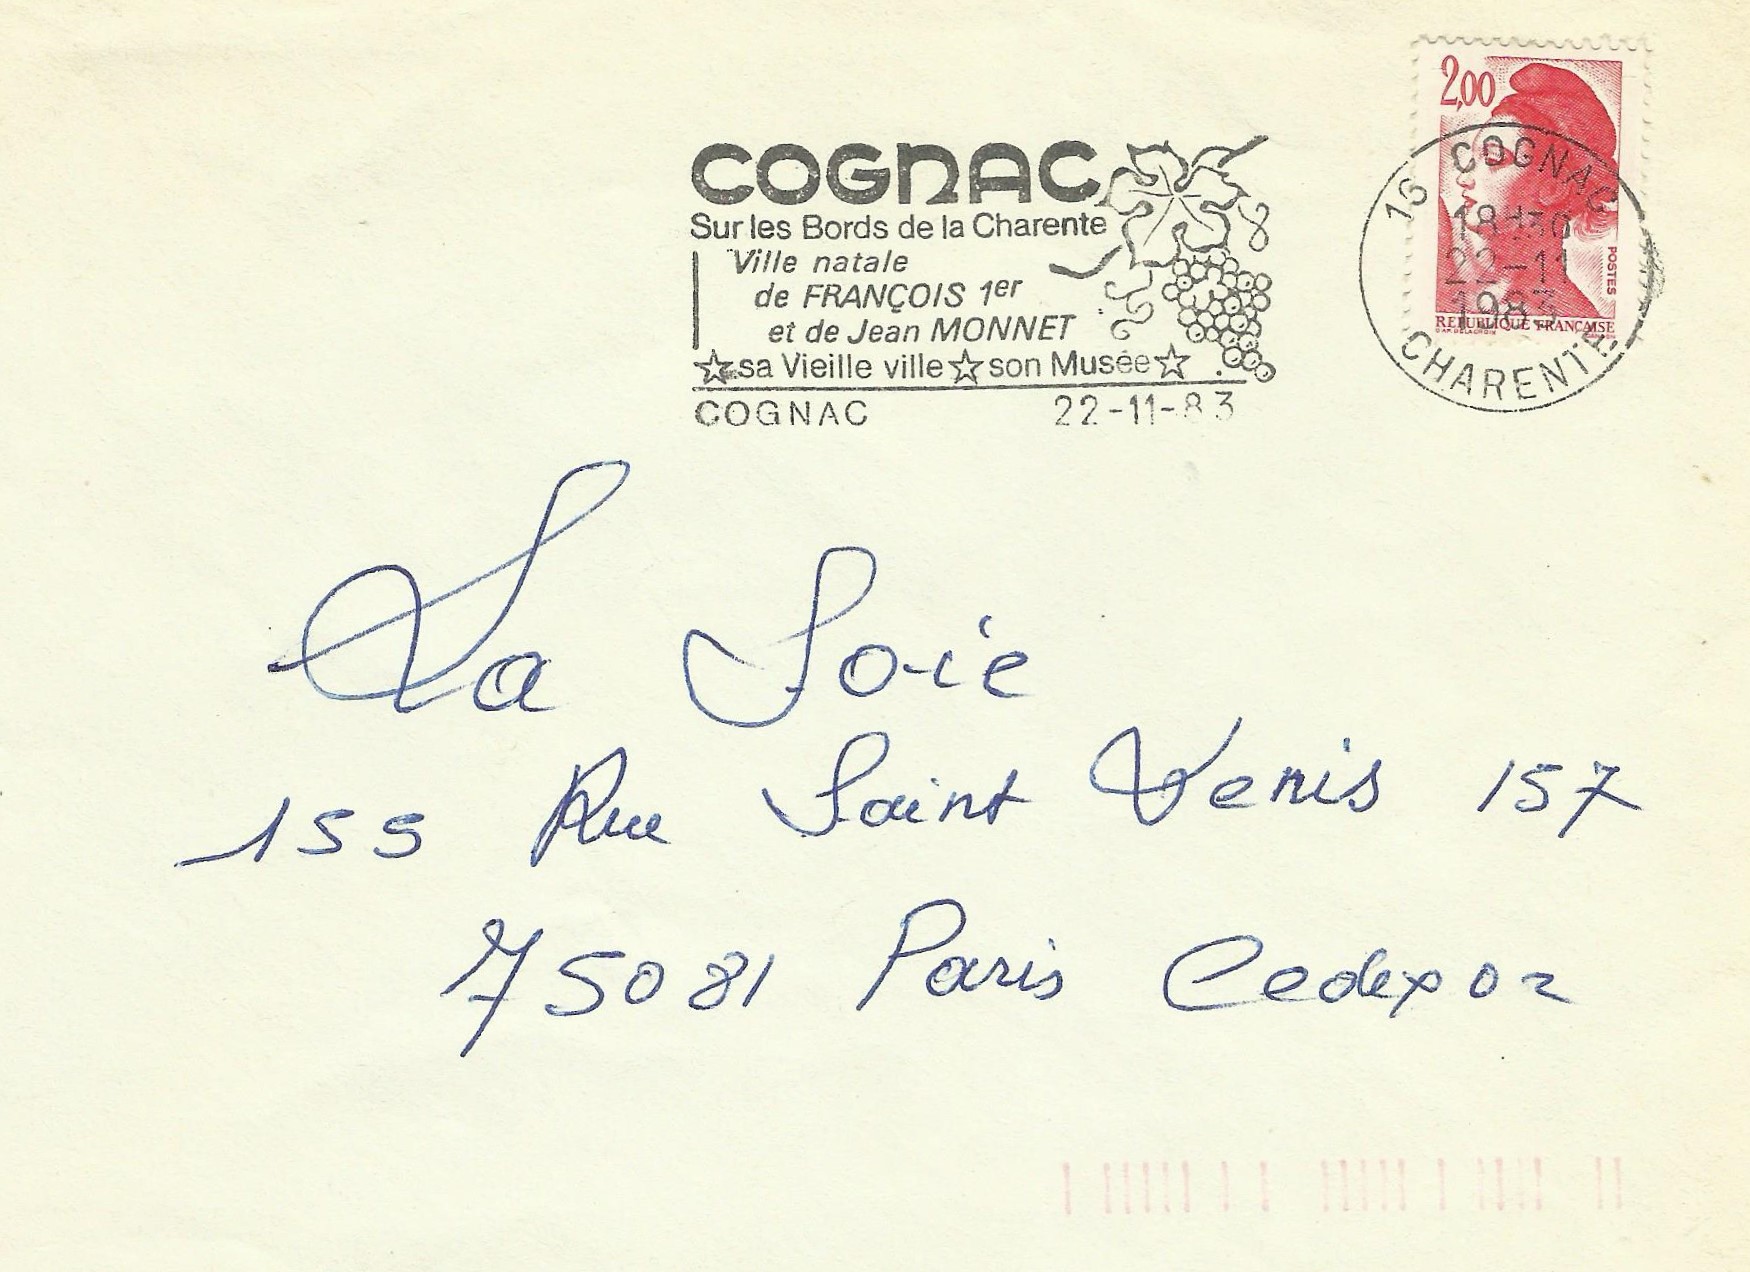 2,00
POSTES
REPUBLIQUE FRANÇAISE
16 COGNAC
18H30
22-11
1983
CHARENTE
COGNAC
Sur les Bords de la Charente
Ville natale
de FRANÇOIS 1er
et de Jean MONNET
☆ sa Vieille ville ☆ son Musée ☆
COGNAC 22-11-83
La Soie
155 Rue Saint Denis 157
75081 Paris Cedex 02